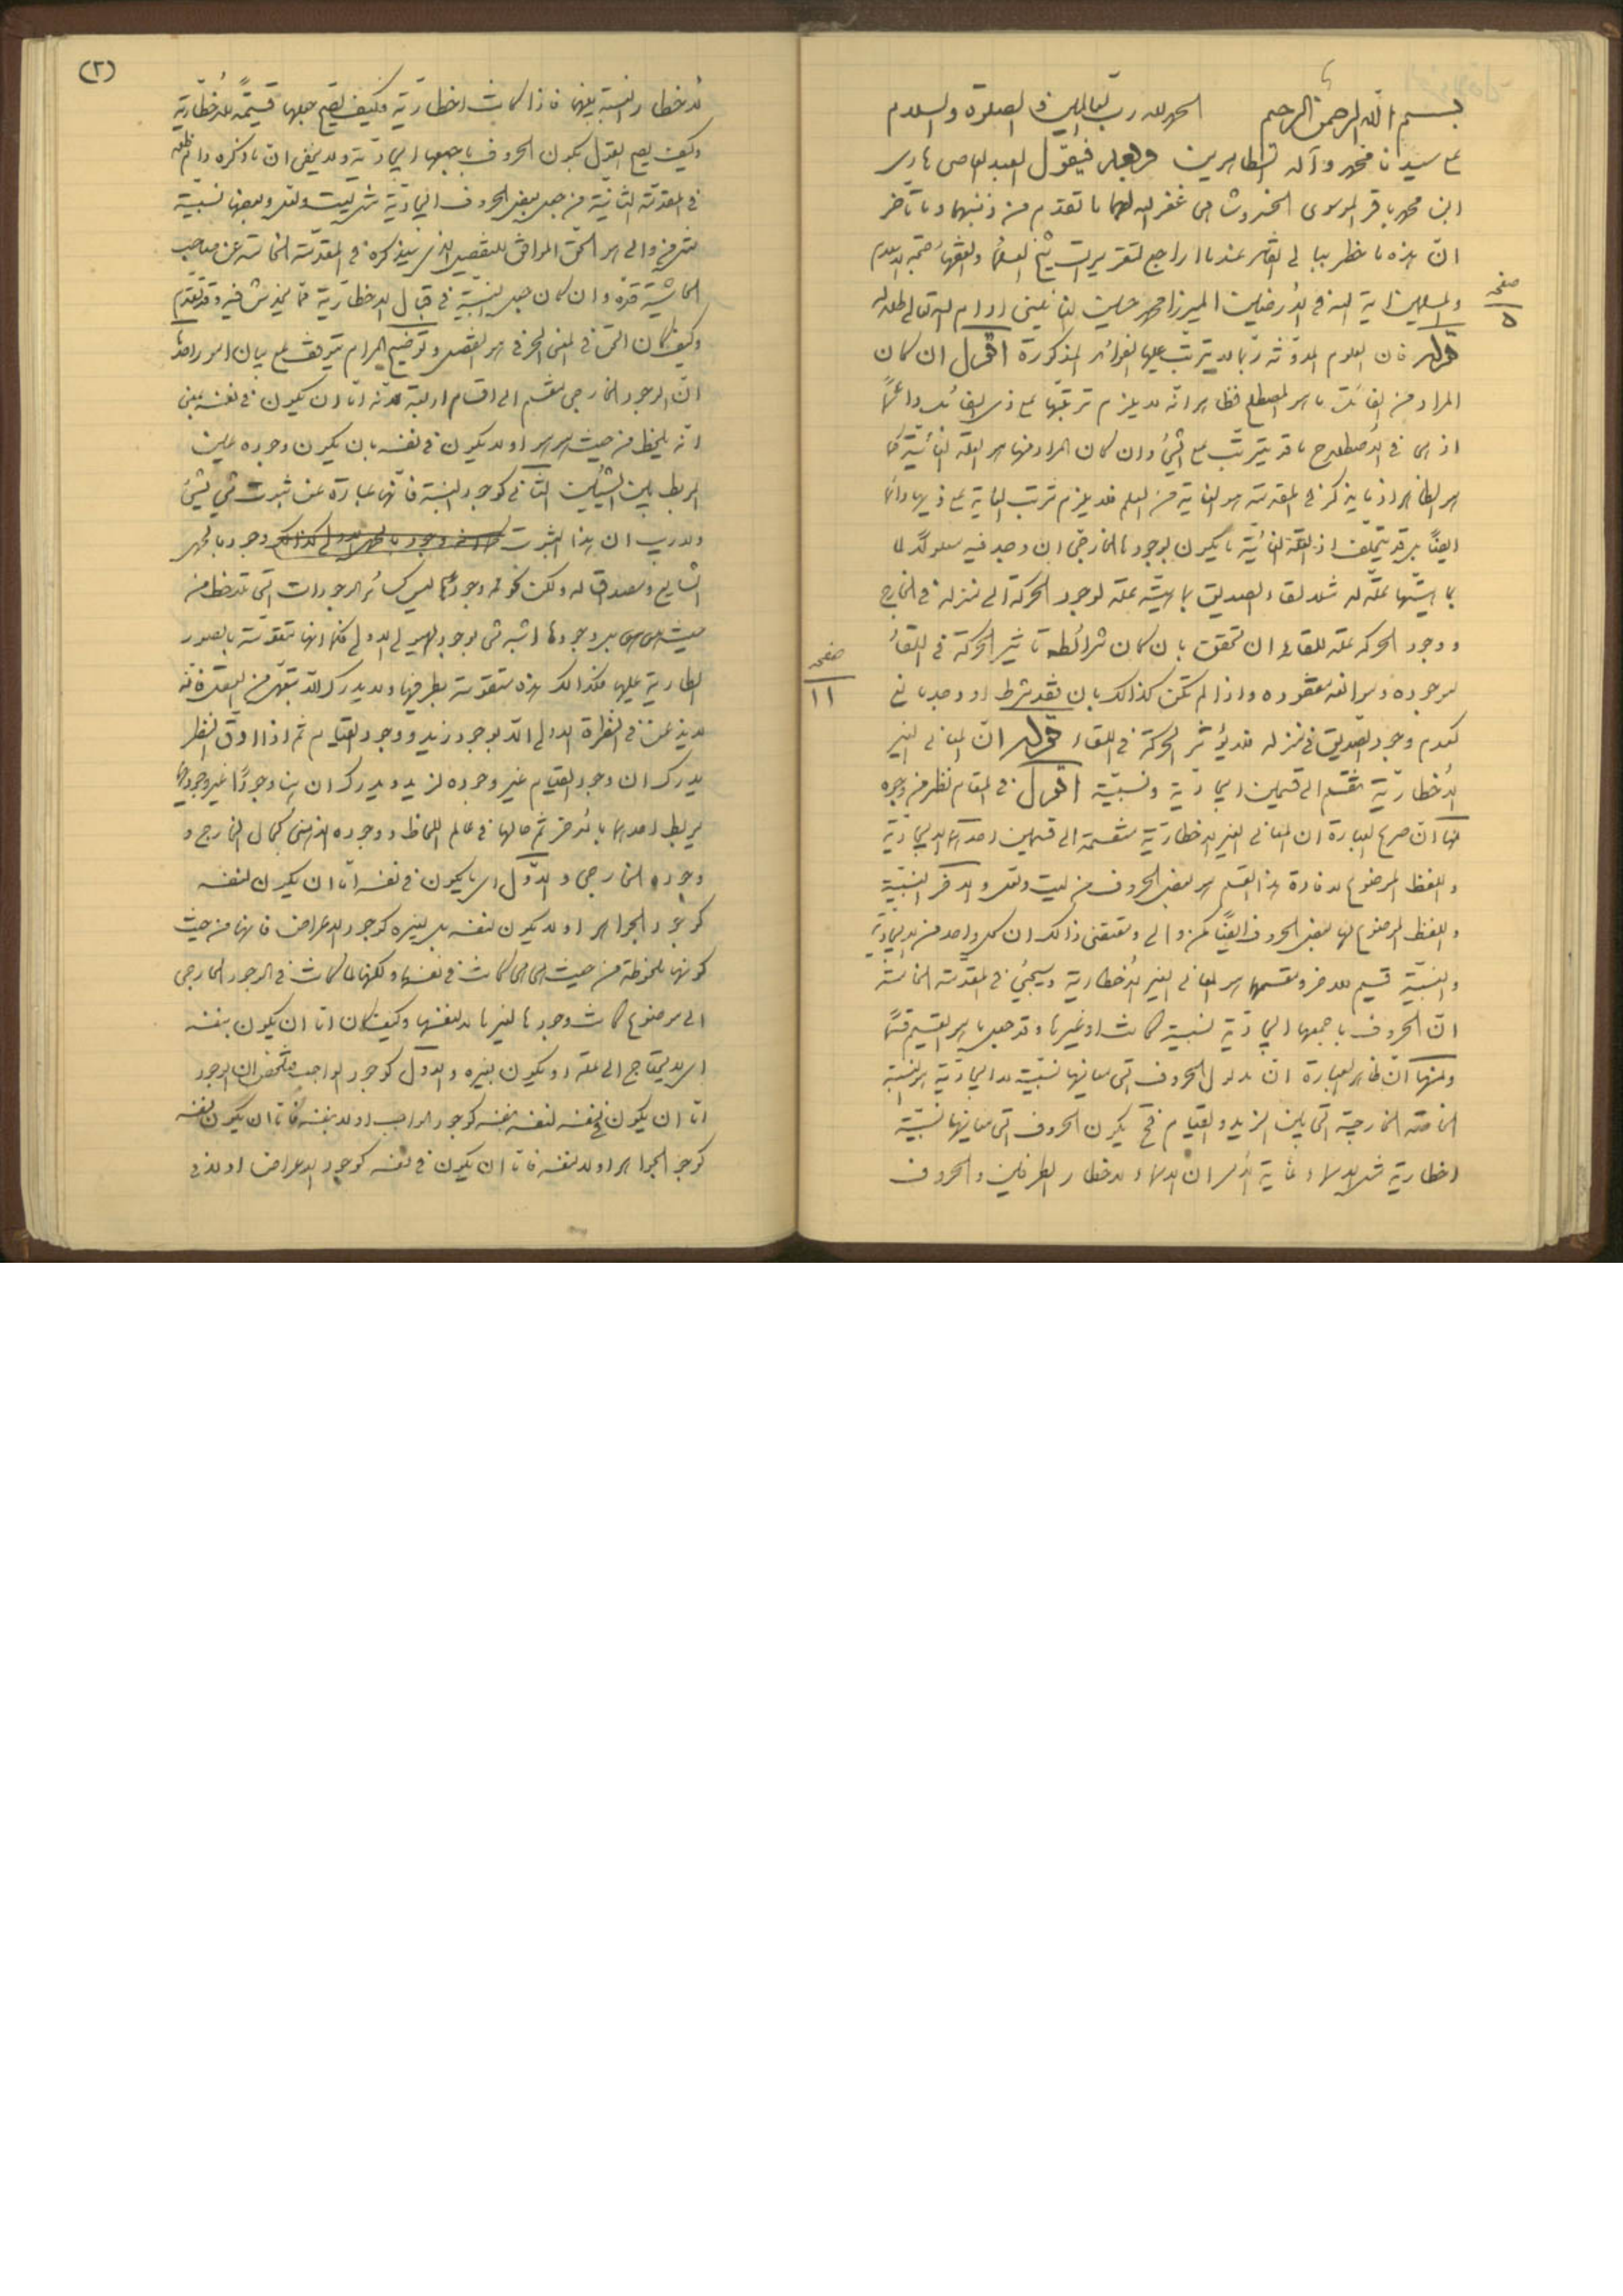 بسم الله الرحمن الرحیم الحمد لله رب العالمین و الصلوة والسلام
علی سیدنا محمد وآله الطاهرین وبعد فیقول العبد العاصی هادی
ابن محمد باقر الموسوی غفر الله لهما ما تقدم من ذنبهما وما تأخر
ان هذه ما خطر ببالی القاصر عند ما اراجع لتقریرات شیخ العلماء والفقهاء حجة الاسلام
والمسلمین ایة الله فی الأرضین المیرزا محمد حسین النائینی ادام الله تعالی ظله
صفحه
۵
قوله فان العلوم المدونة ربما لا یترتب علیها الفوائد المذکورة اقول ان کان
المراد من الفائدة ما هو المصطلح فظاهر انه لا یلزم ترتبها علی ذی الفائدة دائماً
اذ هی فی الأصطلاح ما قد یترتب علی الشیء وان کان المراد منها هو العلة الغائیة کما
هو الظاهر اذ ما یذکر فی المقدمة هو الغایة من العلم فلا یلزم ترتب الغایة علی ذیها دائما
ایضاً بل قد یتخلف اذ العلة الغائیة ما یکون لوجودها الخارجی ان وجد فیه معلولاً لما
بماهیتها علة له مثلا لقاء الصدیق بماهیته علة لوجود الحرکة الی منزله فی الخارج
ووجود الحرکة علة للقاء ان تحقق بان کان شرائطه تاثیر الحرکة فی اللقاء
موجوده وموانعه مفقوده واذا لم تکن کذالک بان فقد شرط او وجد مانع
صفحه
۱۱
کعدم وجود الصدیق فی منزله فلا یؤثر الحرکة فی اللقاء قوله ان المعانی الغیر
الأخطاریّة تنقسم الی قسمین ایجادیة ونسبیّة اقول فی المقام نظر من وجوه
منها ان صریح العبارة ان المعانی الغیر الاخطاریّة منقسمة الی قسمین احدهما الایجادیّة
واللفظ الموضوع لافادة هذا القسم هو بعض الحروف من لیت ولعل والاخر النسبیّة
واللفظ الموضوع لها بعض الحروف ایضاً کمن والی ومقتضی ذالک ان کل واحد من الایجادیّة
والنسبیّة قسیم للاخر ومقسمهما هو المعانی الغیر الأخطاریة وسیجئ فی المقدمة الخامسة
ان الحروف باجمعها ایجادیّة نسبیة کانت او غیرها وقد جعل ما هو القسیم قسماً
ومنها ان ظاهر العبارة ان مدلول الحروف التی معانیها نسبیّة لا ایجادیّة هو النسبة
الخاصّة الخارجیة التی بین الزید والقیام فح یکون الحروف التی معانیها نسبیّة
اخطاریة مثل الاسماء غایة الأمر ان الاسماء لاخطار الطرفین والحروف
(۲)
لاخطار النسبة بینهما فاذا کانت اخطاریّة فکیف یصح جعلها قسیمةً للأخطاریة
وکیف یصح القول بکون الحروف باجمعها ایجادیّة ولا یخفی ان ما ذکره دام ظله
فی المقدمة الثانیة من جعل بعض الحروف ایجادیّة مثل لیت ولعل وبعضها نسبیّة
مثل من والی هو الحق الموافق للتفصیل الذی سیذکره فی المقدمة الخامسة عن صاحب
الحاشیة قده وان کان جعل النسبیّة فی قبال الاخطاریّة مما یخدش فیه وقد تقدم
وکیف کان الحق فی المعنی الحرفی هو التفصیل وتوضیح المرام یتوقف علی بیان امور احدها
ان الوجود الخارجی منقسم الی اقسام اربعة لانه اما ان یکون فی نفسه بمعنی
انه یلحظ من حیث هو هو او لا یکون فی نفسه بان یکون وجوده عین
الربط بین الشیئین الثانی کوجود النسبة فانها عبارة عن ثبوت شیء لشیء
ولا ریب ان هذا الثبوت وجود بالحمل
الشایع ومصداق له ولکن نحو وجودها لیس کسائر الوجودات التی تلاحظ من
حیث هی هی بل وجودها اشبه شی بوجود الهیولی الاولی فکما انها متقومة بالصور
الطاریة علیها فکذالک هذه متقومة بطرفیها ولا یدرک الا بتعمّل من العقل فانه
لا یذعن فی النظرة الاولی الا بوجود زید ووجود القیام ثم اذا دقّ النظر
یدرک ان وجود القیام غیر وجوده لزید ویدرک ان هنا وجوداً غیر وجودیهما
یربط احدهما بالأخر ثم حالها فی عالم اللحاظ ووجوده الذهنی کحال الخارج و
وجوده الخارجی والاوّل ای ما یکون فی نفسه اما ان یکون لنفسه
کوجود الجواهر او لا یکون لنفسه بل لغیره کوجود الاعراض فانها من حیث
کونها ملحوظة من حیث هی هی کانت فی نفسها ولکنها لما کانت فی الوجود الخارجی
الی موضوع کانت وجودها لغیرها لا لنفسها وکیف کان اما ان یکون بنفسه
ای لا یحتاج الی علة او یکون بغیره والاول کوجود الواجب فتلخص ان الوجود
اما ان یکون فی نفسه لنفسه بنفسه کوجود الواجب او لا بنفسه فاما ان یکون لنفسه
کوجود الجواهر او لا لنفسه فاما ان یکون فی نفسه کوجود الاعراض او لا فی